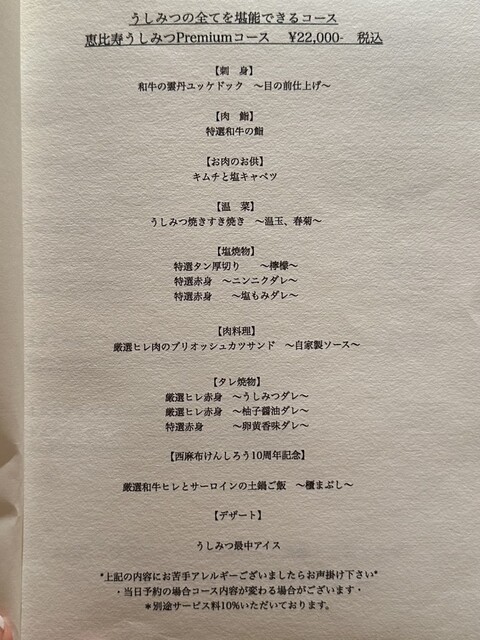 うしみつの全てを堪能できるコース
恵比寿うしみつPremiumコース ¥22,000- 税込
【刺 身】
和牛の雲丹ユッケドック ～目の前仕上げ～
【肉 鮨】
特選和牛の鮨
【お肉のお供】
キムチと塩キャベツ
【温 菜】
うしみつ焼きすき焼き ～温玉、春菊～
【塩焼物】
特選タン厚切り ～檸檬～
特選赤身 ～ニンニクダレ～
特選赤身 ～塩もみダレ～
【肉料理】
厳選ヒレ肉のブリオッシュカツサンド ～自家製ソース～
【タレ焼物】
厳選ヒレ赤身 ～うしみつダレ～
厳選ヒレ赤身 ～柚子醤油ダレ～
特選赤身 ～卵黄香味ダレ～
【西麻布けんしろう10周年記念】
厳選和牛ヒレとサーロインの土鍋ご飯 ～櫃まぶし～
【デザート】
うしみつ最中アイス
*上記の内容にお苦手アレルギーございましたらお声掛け下さい*
・当日予約の場合コース内容が変わる場合がございます・
＊別途サービス料10%いただいております。